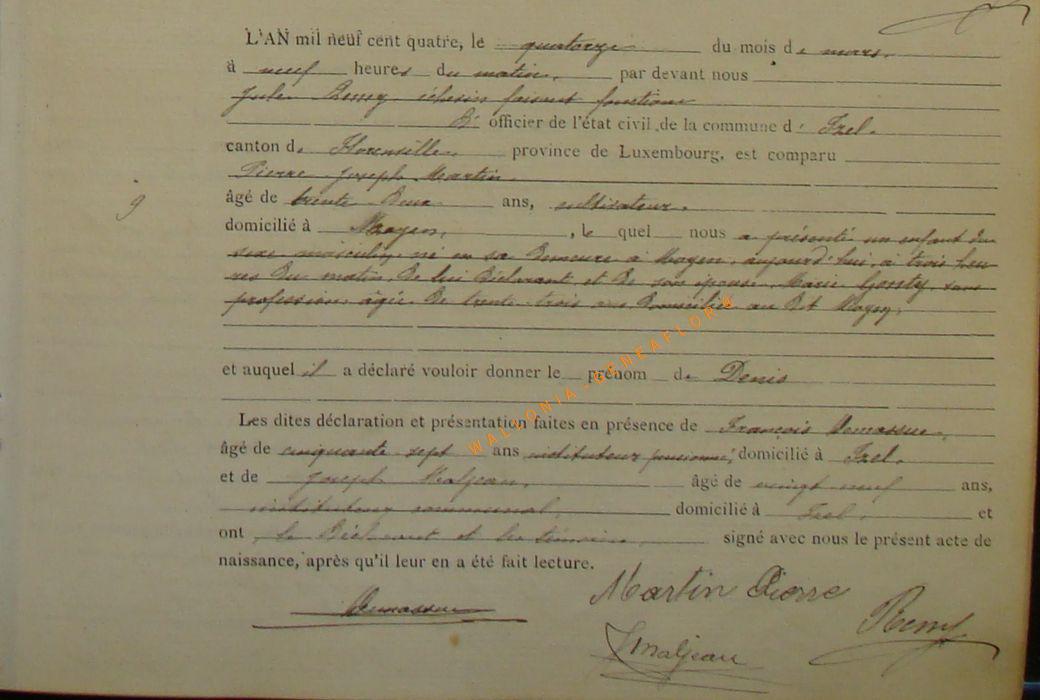 L'AN mil neuf cent quatre, le quatorze du mois de mars,
à neuf heures du matin, par devant nous
Jules Remy, échevin faisant fonctions
d' officier de l'état civil de la commune d' Izel,
canton de Florenville, province de Luxembourg, est comparu
Pierre Joseph Martin,
âgé de trente deux ans, cultivateur,
domicilié à Moyen, , le quel nous a présenté un enfant du
sexe masculin, né en sa demeure à Moyen, aujourd'hui, à trois heu-
res du matin de lui déclarant et de son épouse Marie Gonty, sans
profession, âgée de trente-trois ans domiciliée au dit Moyen,
et auquel il a déclaré vouloir donner le prénom de Denis
Les dites déclaration et présentation faites en présence de François
âgé de cinquante sept ans instituteur pensionné, domicilié à Izel,
et de Joseph Maljean, âgé de vingt neuf ans,
instituteur communal, domicilié à Izel, et
ont le déclarant et les témoins, signé avec nous le présent acte de
naissance, après qu'il leur en a été fait lecture.
Martin Pierre
Remy
JMaljean
9
WALLONIA-GENEAFLORIN